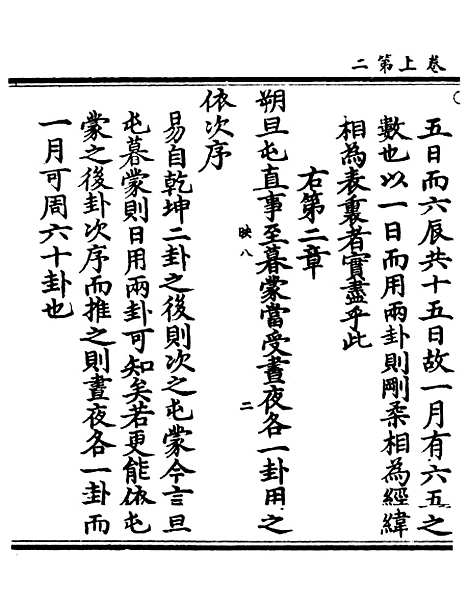 卷上第二
五日而六辰共十五日故一月有六五之
數也以一日而用兩卦則剛柔相為經緯
相為表裏者實盡乎此
右第二章
朔旦屯直事至暮蒙當受晝夜各一卦用之
依次序
映八
二
易自乾坤二卦之後則次之屯蒙今言旦
屯暮蒙則日用兩卦可知矣若更能依屯
蒙之後卦次序而推之則晝夜各一卦而
一月可周六十卦也